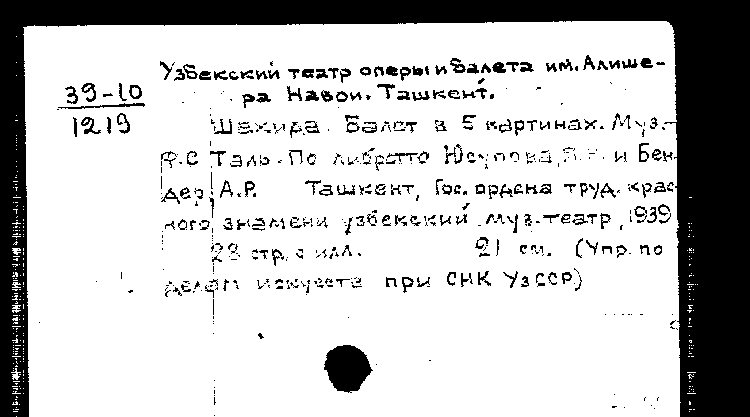 Узбекский театр оперы и балета им. Алише-
ра Навои. Ташкент.
39-10
1219
Шахида. Балет в 5 картинах. Муз.
Ф.С Таль. По либретто Юсупова, и Бен-
дер, А.Р. Ташкент, Гос. ордена труд. крас-
ного знамени узбекский муз. театр, 1939
28 стр. с илл. 21 см. (Упр. по
делам искусств при СНК УзССР)